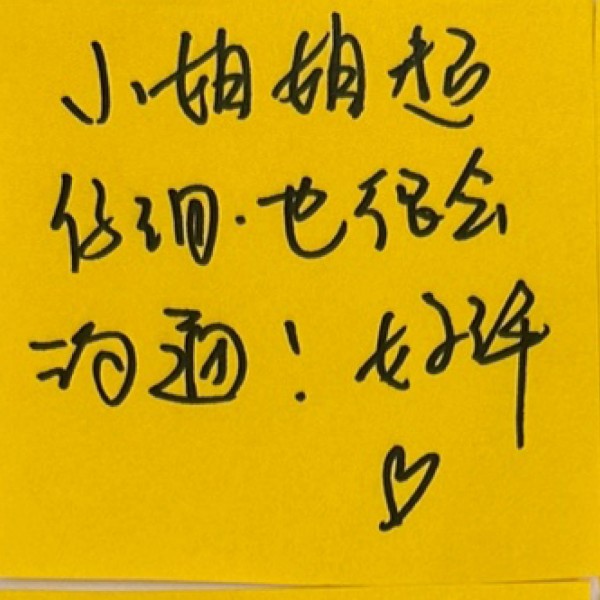 小姐姐超
仔细.也很会
沟通!好评
♡